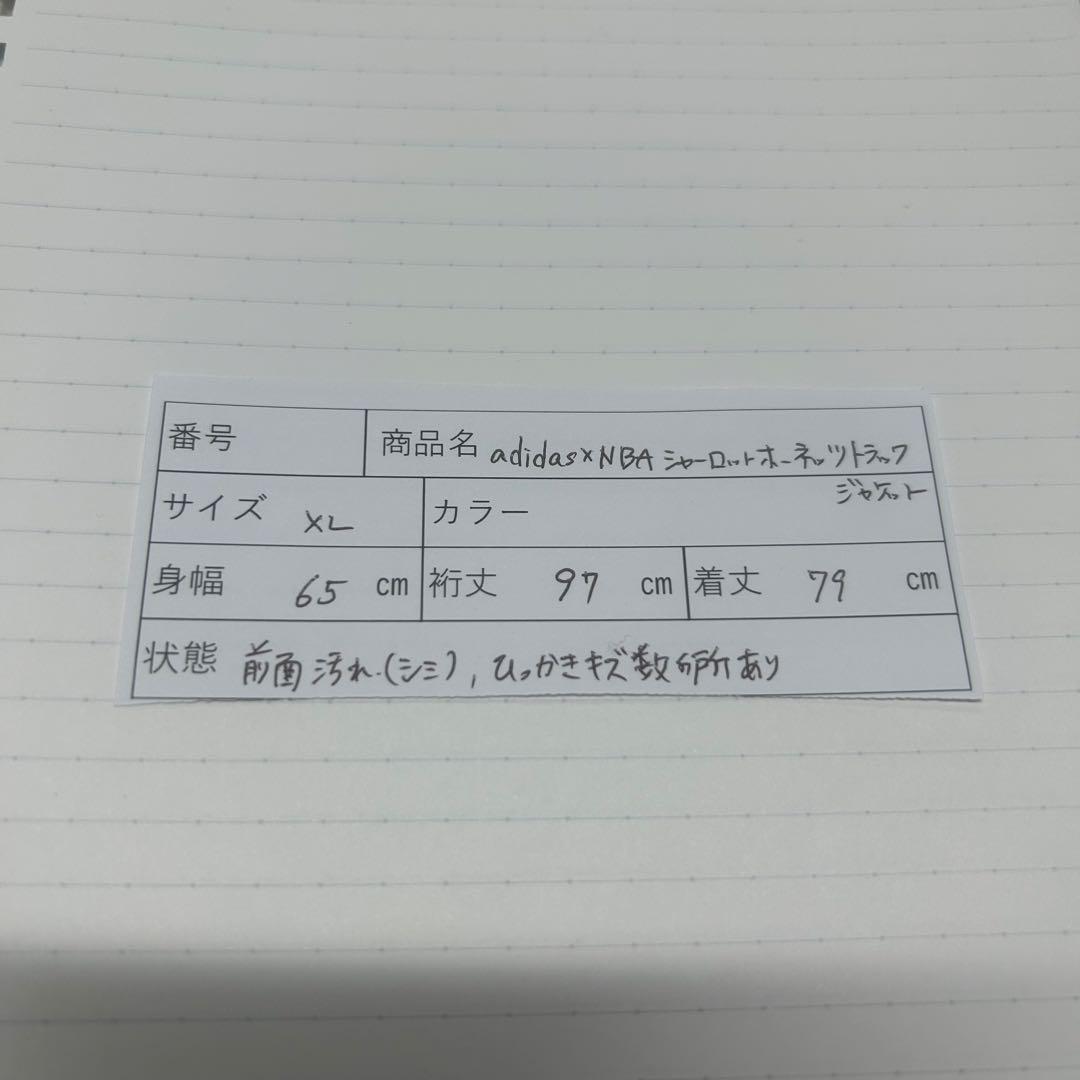 番号 商品名 adidas×NBA シャーロットホーネッツトラック
ジャケット
サイズ XL カラー
身幅 65 cm 裄丈 97 cm 着丈 79 cm
状態 前面汚れ(シミ), ひっかきキズ数ヶ所あり